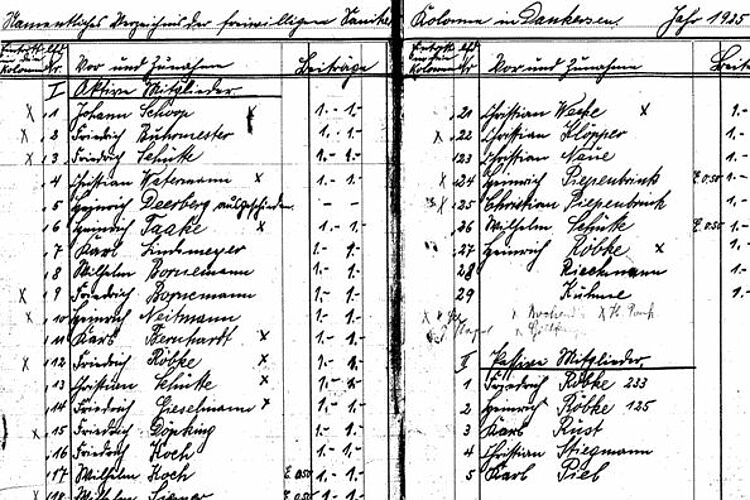 Namentliches Verzeichnis der freiwilligen Sanitäts
Eintritt in die Kolonne lfd Nr. Vor und Zunahme Beiträge
I Aktive Mitglieder
x 1 Johann Schoop x 1.- 1.-
x 2 Friedrich Buhrmester 1.- 1.-
x 3 Friedrich Schütte 1.- 1.-
4 Christian Watermann x 1.- 1.-
5 Heinrich Deerberg ausgeschieden - -
6 Heinrich Taake x 1.- 1.-
7 Karl Lindemeyer 1.- 1.-
8 Wilhelm Bornemann 1.- 1.-
x 9 Friedrich Bornemann 1.- 1.-
x 10 Heinrich Neitmann 1.- 1.-
11 Karl Bernhardt x 1.- 1.-
x 12 Friedrich Röbke x 1.- 1.-
13 Christian Schütte x 1.- 1.-
14 Friedrich Gieselmann x 1.- 1.-
x 15 Friedrich Döpking 1.- 1.-
16 Friedrich Koch 1.- 1.-
17 Wilhelm Koch E 0.50 1.- 1.-
18 Wilhelm
Kolonne in Dankersen. Jahr 1935
Eintritt in die Kolonne lfd Nr Vor und Zunahme Beit
21 Christian Weske x 1.-
x 22 Christian Klöpper 1.-
23 Christian Naue 1.-
x 24 Heinrich Piepenbrink E 0.50 1.-
x 25 Christian Piepenbrink 1.-
26 Wilhelm Schütte E 0.50 1.-
27 Heinrich Röbke x 1.-
28 Rieckmann 1.-
29 Kuhne 1.-
II Passive Mitglieder.
1 Friedrich Röbke 233
2 Heinrich Röbke 125
3 Karl Rust
4 Christian Stiegmann
5 Karl Piel